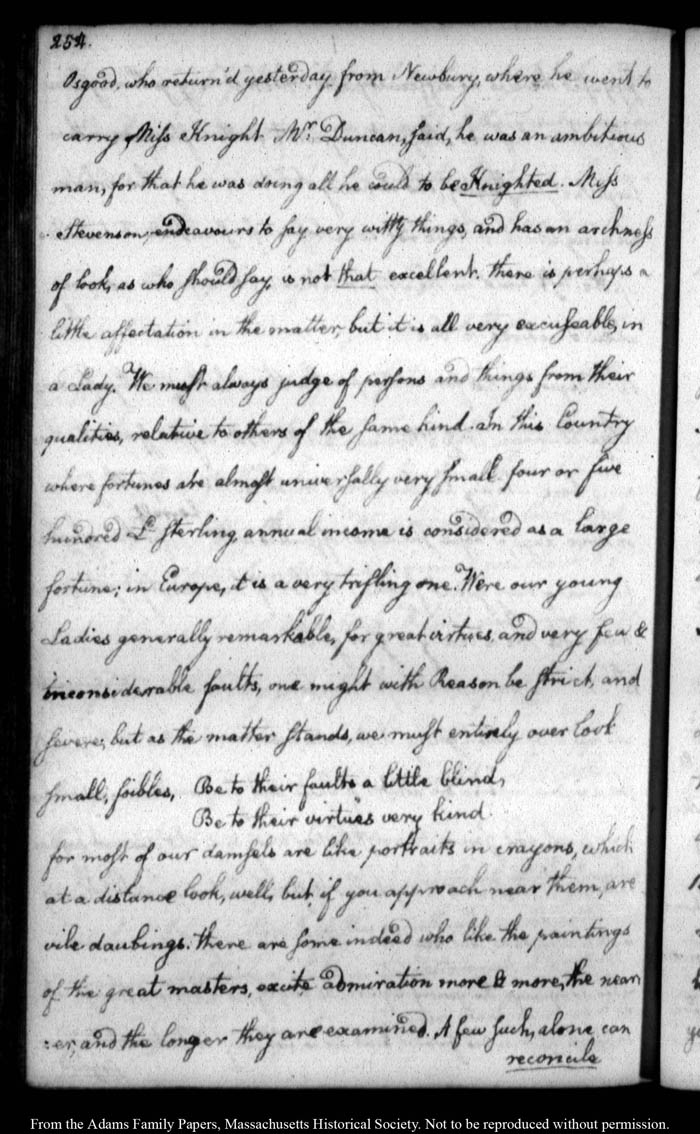 254.
Osgood, who return'd yesterday from Newbury, where he went to
carry Miss Knight Mr. Duncan, said, he was an ambitious
man, for that he was doing all he could to be Knighted. Miss
Stevenson, endeavours to say very witty things, and has an archness
of look, as who should say, is not that excellent. there is perhaps a
little affectation in the matter, but it is all very excuseable, in
a Lady. We must always judge of persons and things from their
qualities, relative to others of the same kind. In this Country
where fortunes are almost universally very small four or five
hundred £ sterling annual income is considered as a large
fortune; in Europe, it is a very trifling one. Were our young
Ladies generally remarkable, for great virtues, and very few &
inconsiderable faults, one might with Reason be strict, and
severe; but as the matter stands, we must entirely over look
small, foibles, Be to their faults a little blind,
Be to their virtues very kind.
for most of our damsels are like portraits in crayons, which
at a distance look, well, but if you approach near them, are
vile daubings. there are some indeed who like the paintings
of the great masters, excite admiration more & more, the near
:er, and the longer they are examined. A few such, alone can
reconcile
From the Adams Family Papers, Massachusetts Historical Society. Not to be reproduced without permission.